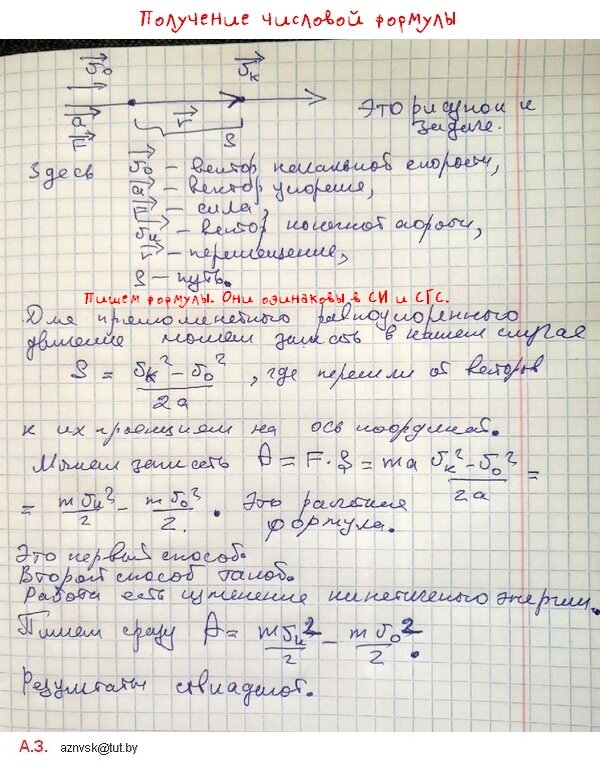 Получение числовой формулы
v₀ vₖ
a r
F S
Это рисунок к
задаче.
Здесь v₀ – вектор начальной скорости,
a – вектор ускорения,
F – сила,
vₖ – вектор конечной скорости,
r – перемещение,
S – путь.
Пишем формулы. Они одинаковы в СИ и СГС.
Для прямолинейного равноускоренного
движения можем запсать в нашем случае
S = (vₖ² – v₀²) / 2a, где перешли от векторов
к их проекциям на ось координат.
Можем записать A = F·S = ma (vₖ² – v₀²) / 2a =
= mvₖ²/2 – mv₀²/2. Это расчетная
формула.
Это первый способ.
Второй способ такой.
Работа есть изменение кинетической энергии.
Пишем сразу A = mvₖ²/2 – mv₀²/2.
Результаты совпадают.
А.З. aznvsk@tut.by